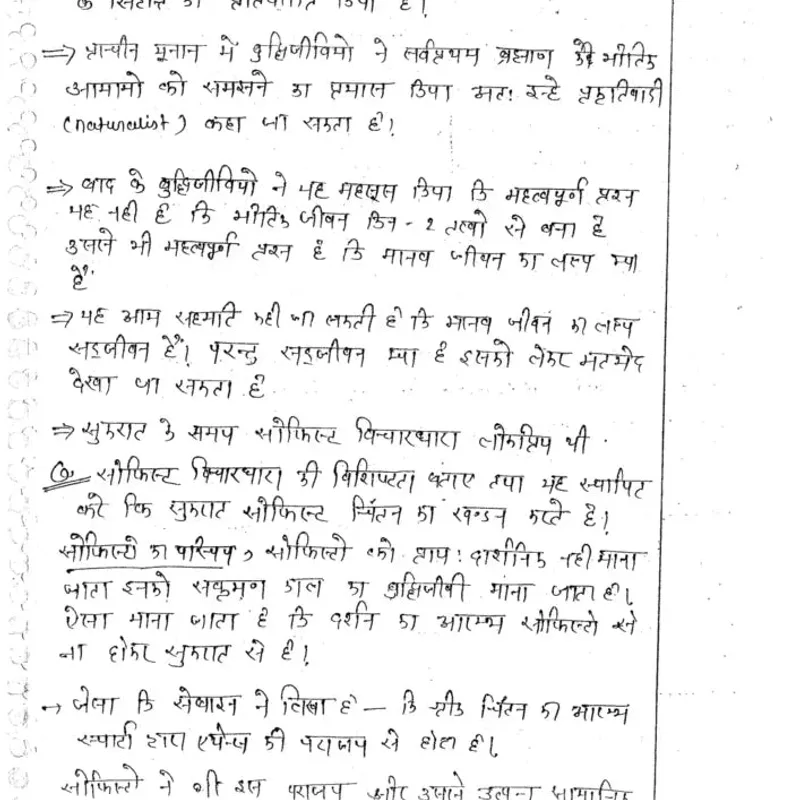 के सिद्धांत का प्रतिपादन किया है।
⇒ प्राचीन यूनान में बुद्धिजीवियो ने सर्वप्रथम ब्रह्माण के भौतिक
आयामो को समझने का प्रयास किया अतः इन्हे प्रकृतिवादी
(naturalist) कहा जा सकता है।
⇒ बाद के बुद्धिजीवियो ने यह महसूस किया कि महत्वपूर्ण प्रश्न
यह नही है कि भौतिक जीवन किन-2 तत्वो से बना है
उससे भी महत्वपूर्ण प्रश्न है कि मानव जीवन का लक्ष्य क्या
है
⇒ यह आम सहमति कही जा सकती है कि मानव जीवन का लक्ष्य
सद्जीवन है। परन्तु सद्जीवन क्या है इसको लेकर मतभेद
देखा जा सकता है
⇒ सुकरात के समय सोफिस्ट विचारधारा लोकप्रिय थी .
Q. सोफिस्ट विचारधारा की विशिष्टता बताए तथा यह स्थापित
करे कि सुकरात सोफिस्ट चिंतन का खण्डन करते है।
सोफिस्टो का परिचय, सोफिस्टो को प्रायः दार्शनिक नही माना
जाता इनको संक्रमण काल का बुद्धिजीवी माना जाता है।
ऐसा माना जाता है कि दर्शन का आरम्भ सोफिस्टो से
ना होकर सुकरात से है।
→ जैसा कि सेबाइन ने लिखा है – कि ग्रीक चिंतन का आरम्भ
स्पार्टा द्वारा एथेन्स की पराजय से होता है।
सोफिस्टो ने भी इस पराजय और उससे उत्पन्न सामाजिक